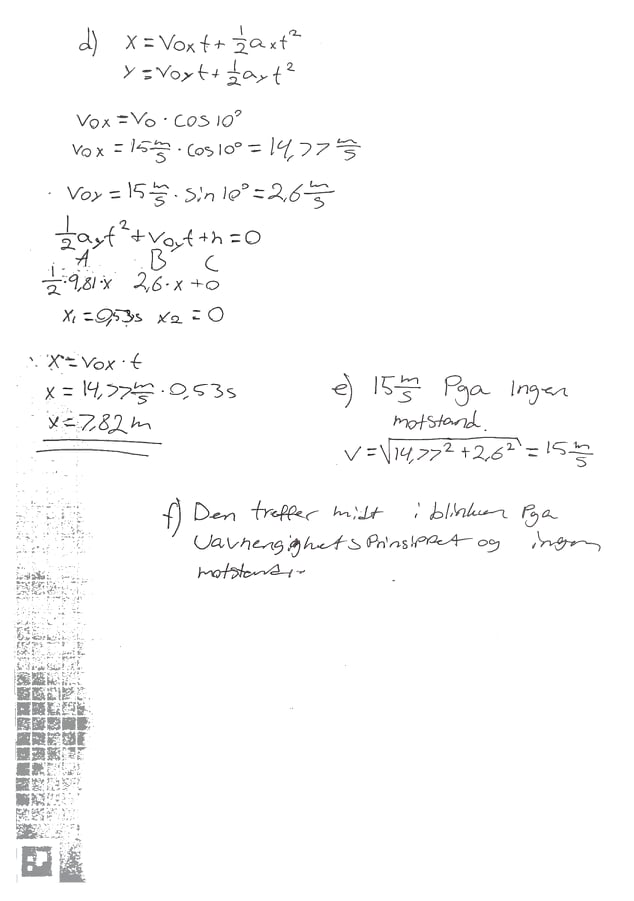 d) x = v0x t + 1/2 ax t²
y = v0y t + 1/2 ay t²
v0x = v0 · cos 10°
v0x = 15 m/s · cos 10° = 14,77 m/s
· v0y = 15 m/s · sin 10° = 2,6 m/s
1/2 ay t² + v0y t + h = 0
A B C
1/2 · 9,81 · x 2,6 · x + 0
x1 = 0,53s x2 = 0
x = v0x · t
x = 14,77 m/s · 0,53s
x = 7,82 m
e) 15 m/s Pga ingen
motstand.
v = √(14,77² + 2,6²) = 15 m/s
f) Den treffer midt i blinken Pga
Uavhengighetsprinsippet og ingen
motstand.